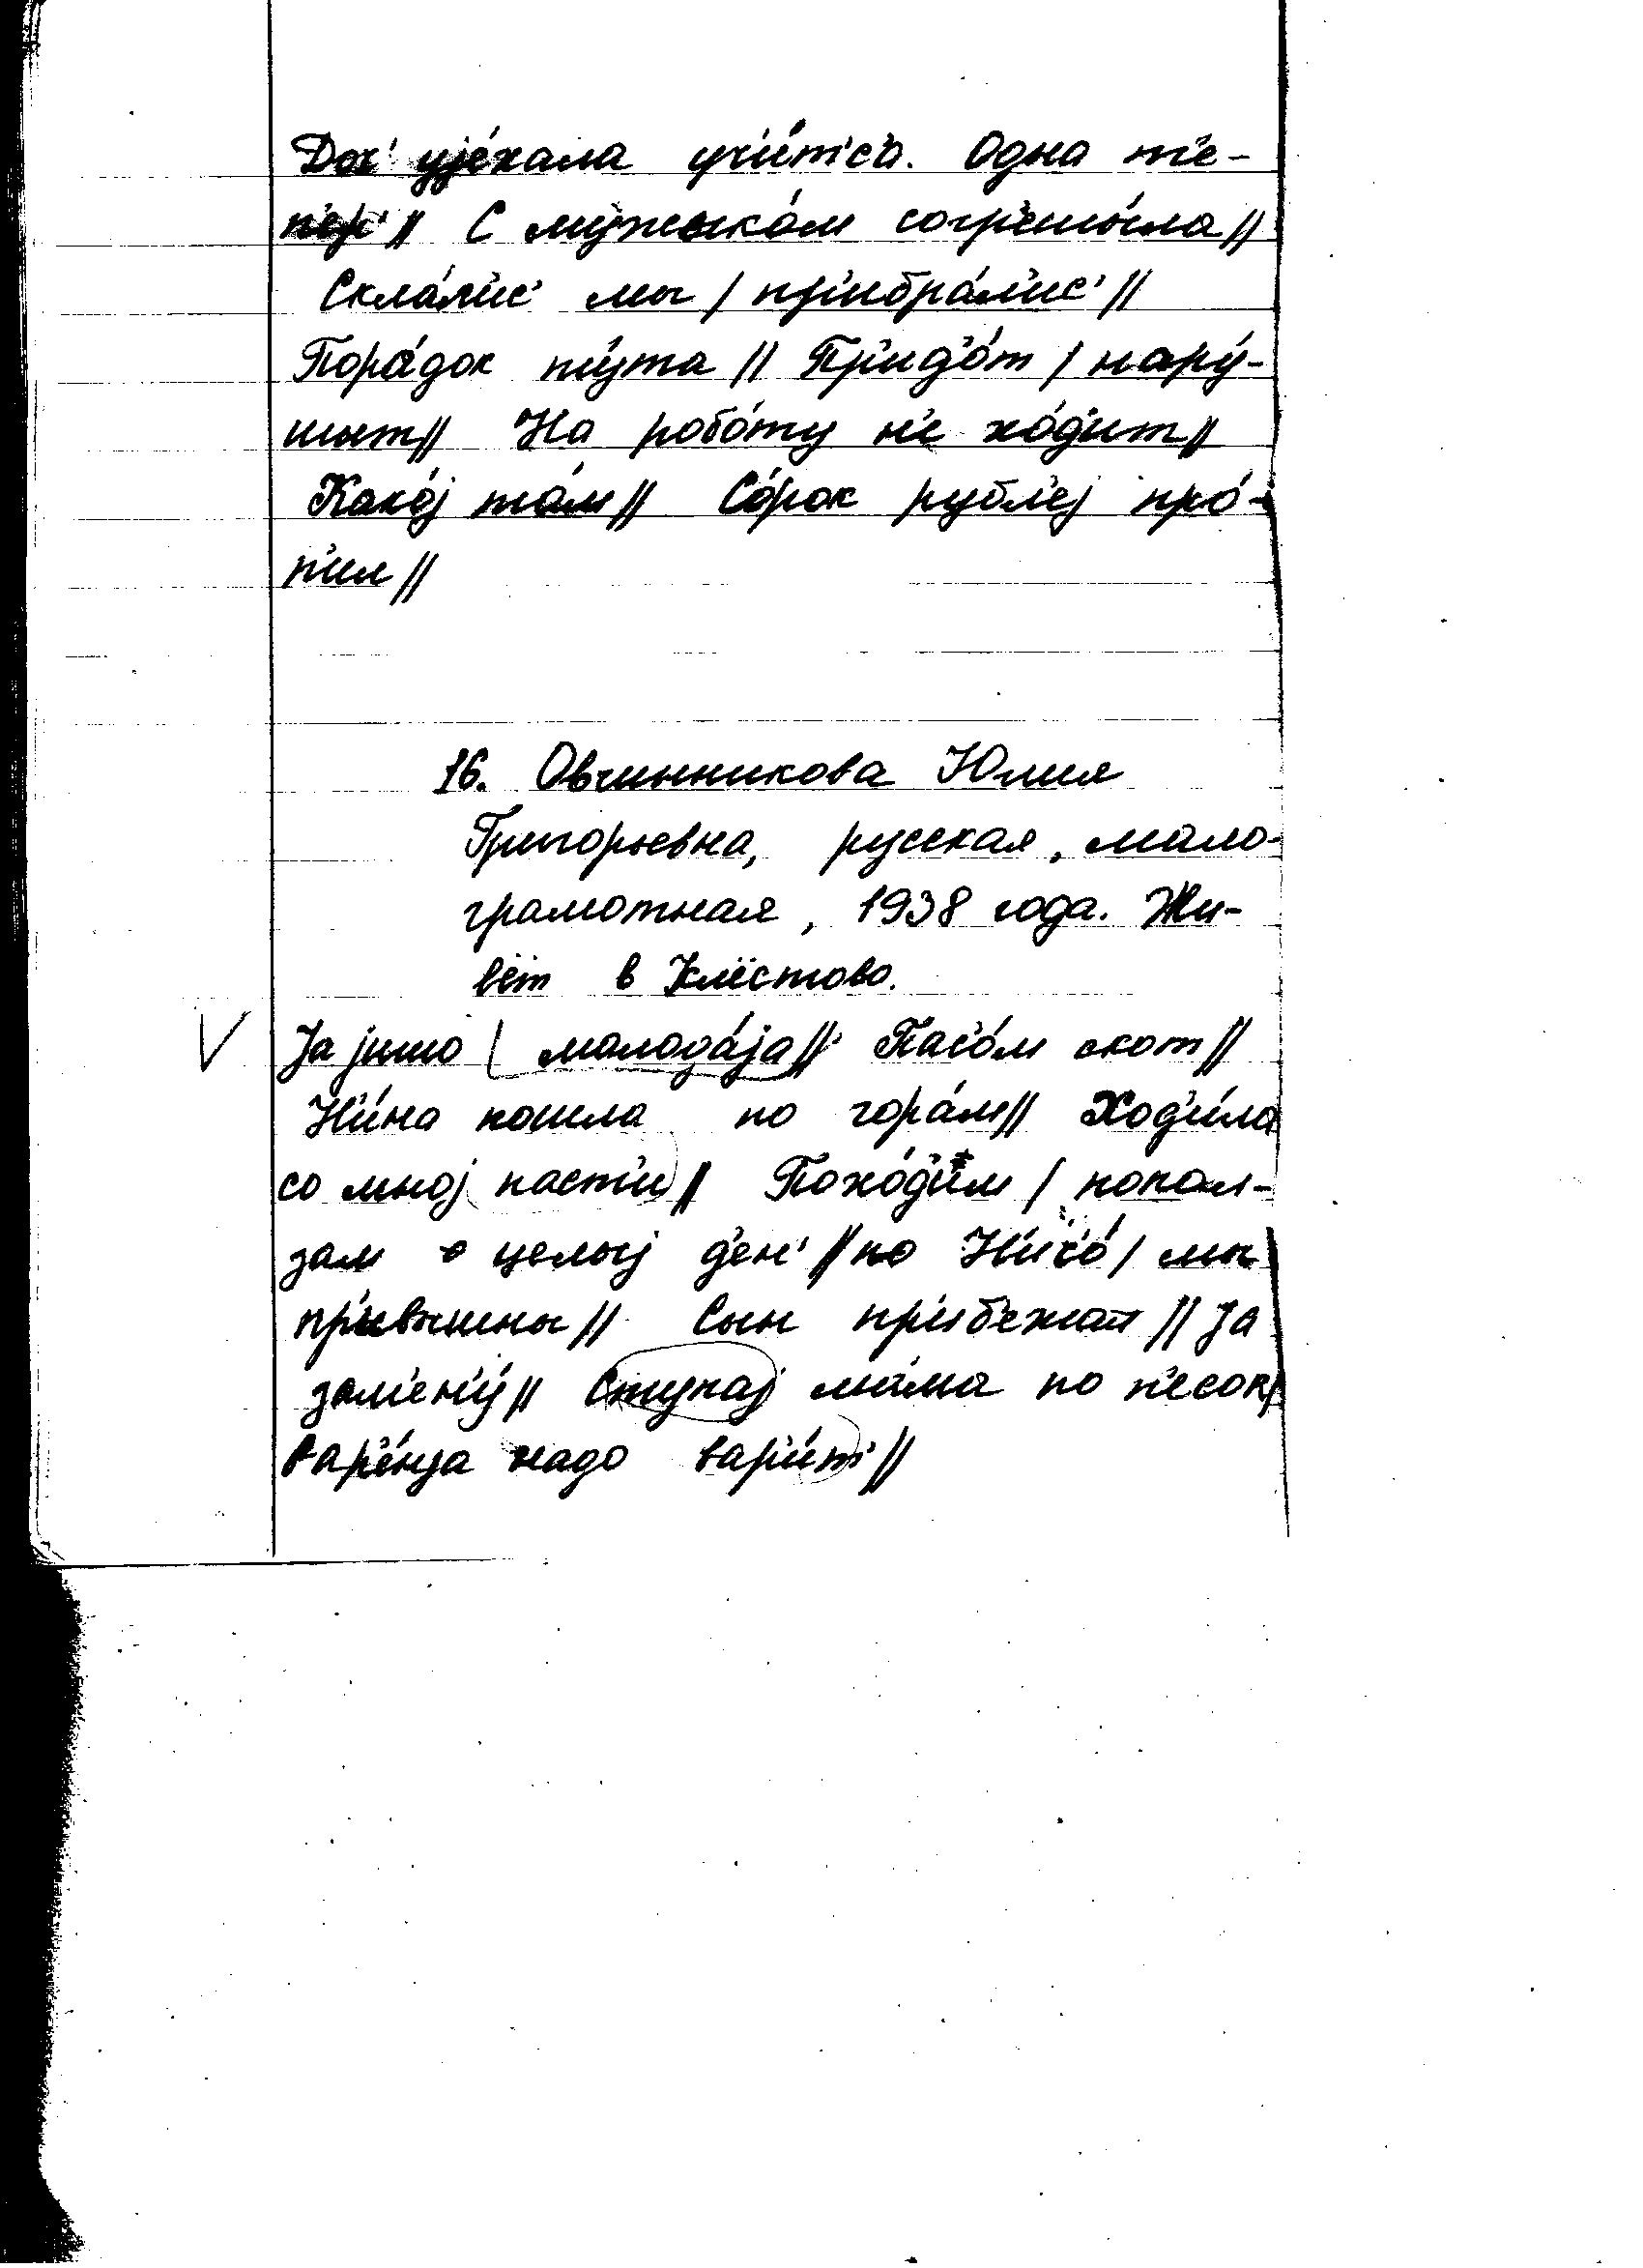 Доч' ујéхала учи́тс'а. Одна т'е-
п'ер' // С мужыкóм согр'ешы́ла //
Склáл'ис' мы / пр'ибрáл'ис' //
Пор'áдок н'у́та // Пр'ид'óт / нару́-
шыт // На робóту н'е хóд'ит //
Какój тáм // Сóрок рубл'еј прó-
п'ил //
16. Овчинникова Юлия
Григорьевна, русская, мало-
грамотная, 1938 года. Жи-
вёт в Клёстово.
Ја јишо молодáја // Пас'óм скот //
Н'и́на пошла по горáм // Ход'и́ла
со мној паст'и // Похóд'им / попол-
зам целыј д'ен' // Н'ич'ó / мы
пр'ивышны // Сын пр'иб'ежат // Ја
зам'ен'у́ // Ступај мáма по п'есок /
вар'éн'ја надо вар'и́т' //